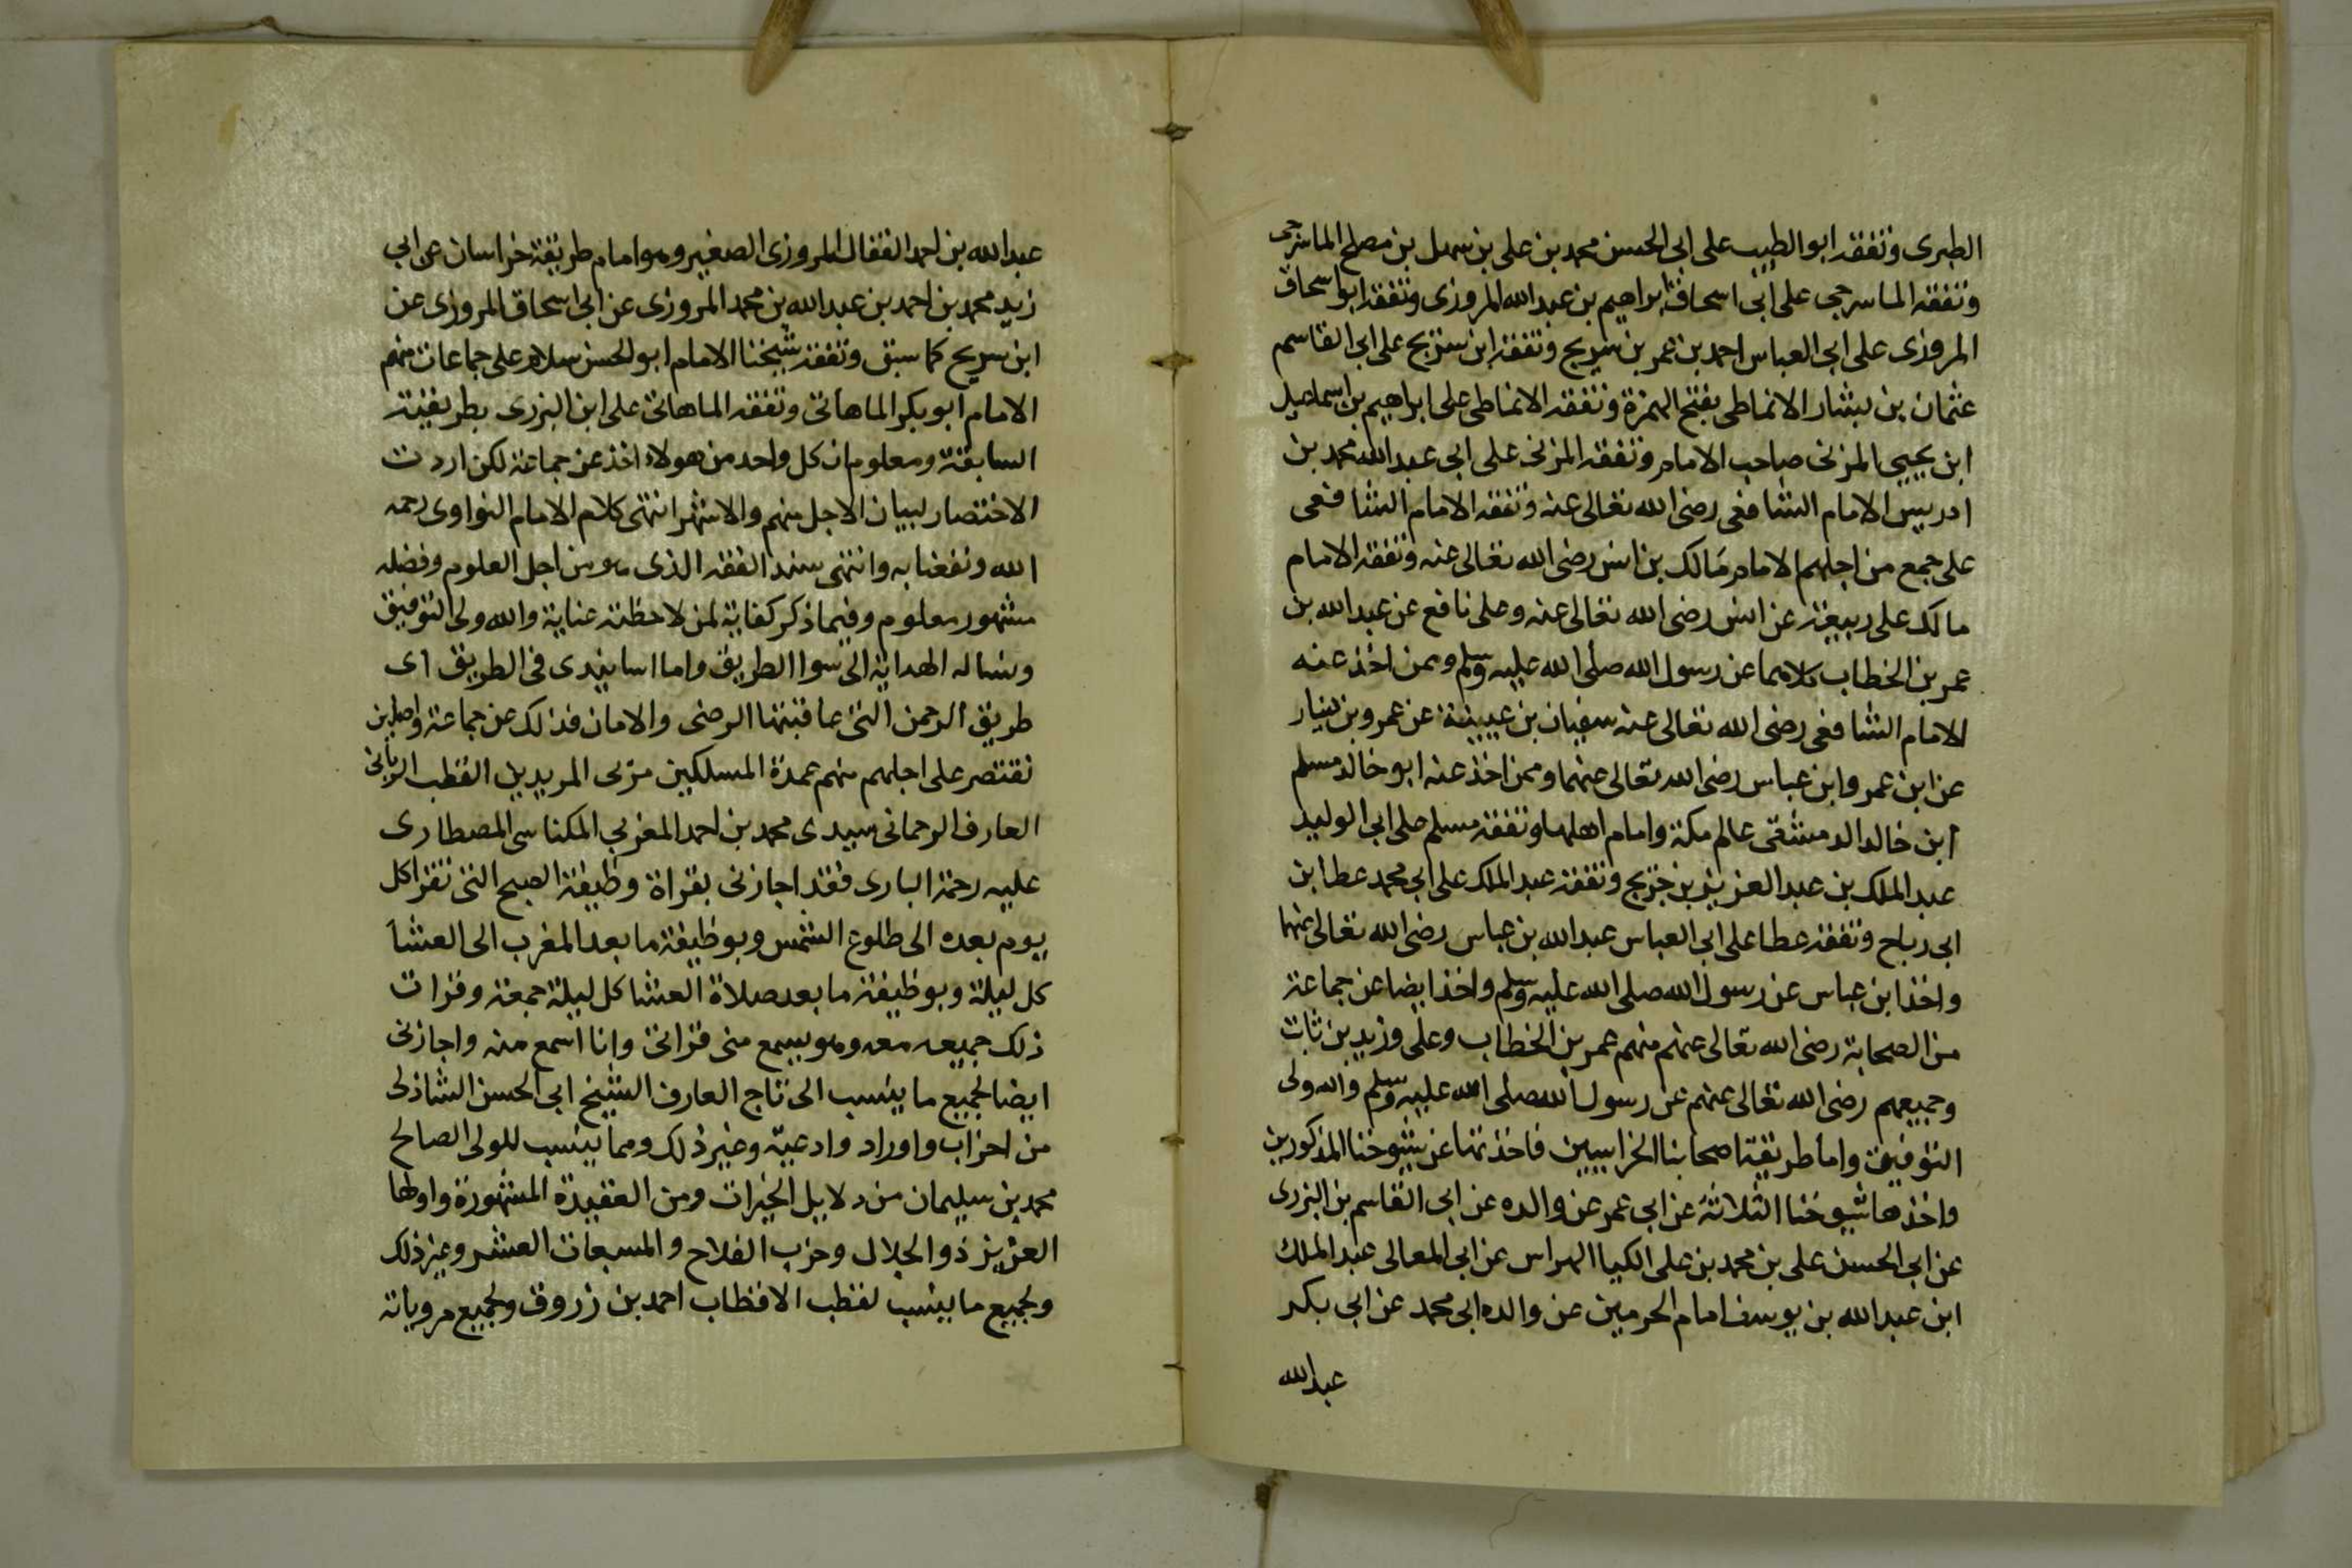 الطبرى وتفقه ابو الطيب على ابى الحسن محمد بن على بن سهل بن مصلح الماسرجى
وتفقه الماسرجى على ابى اسحاق ابراهيم بن عبد الله المروزى وتفقه ابو اسحاق
المروزى على ابى العباس احمد بن عمر بن سريج وتفقه ابن سريج على ابى القاسم
عثمان بن بشار الانماطى بفتح الهمزة وتفقه الانماطى على ابراهيم بن اسماعيل
ابن يحيى المزنى صاحب الامام وتفقه المزنى على ابى عبد الله محمد بن
ادريس الامام الشافعى رضى الله تعالى عنه وتفقه الامام الشافعى
على جمع من اجلهم الامام مالك بن انس رضى الله تعالى عنه وتفقه الامام
مالك على ربيعة عن انس رضى الله تعالى عنه وعلى نافع عن عبد الله بن
عمر بن الخطاب كلاهما عن رسول الله صلى الله عليه وسلم وممن اخذ عنه
الامام الشافعى رضى الله تعالى عنه سفيان بن عيينة عن عمرو بن دينار
عن ابن عمر وابن عباس رضى الله تعالى عنهما وممن اخذ عنه ابو خالد مسلم
ابن خالد الدمشقى عالم مكة وامام اهلها وتفقه مسلم على ابى الوليد
عبد الملك بن عبد العزيز بن جريج وتفقه عبد الملك على ابى محمد عطا بن
ابى رباح وتفقه عطا على ابى العباس عبد الله بن عباس رضى الله تعالى عنهما
واخذ ابن عباس عن رسول الله صلى الله عليه وسلم واخذ ايضا عن جماعة
من الصحابة رضى الله تعالى عنهم منهم عمر بن الخطاب وعلى وزيد بن ثابت
وجميعهم رضى الله تعالى عنهم عن رسول الله صلى الله عليه وسلم والله ولى
التوفيق واما طريقة اصحابنا الخراسيين فاخذتها عن شيوخنا المذكورين
واخذها شيوخنا الثلاثة عن ابى عمر عن والده عن ابى القاسم بن البزرى
عن ابى الحسن على بن محمد بن على الكيا الهراس عن ابى المعالى عبد الملك
ابن عبد الله بن يوسف امام الحرمين عن والده ابى محمد عن ابى بكر
عبد الله
عبد الله بن احمد القفال المروزى الصغير وهو امام طريقة خراسان عن ابى
زيد محمد بن احمد بن عبد الله بن محمد المروزى عن ابى اسحاق المروزى عن
ابن سريج كما سبق وتفقه شيخنا الامام ابو الحسن سلار على جماعات منهم
الامام ابو بكر الماهانى وتفقه الماهانى على ابن البزرى بطريقته
السابقة ومعلوم ان كل واحد من هولاء اخذ عن جماعة لكن اردت
الاختصار لبيان الاجل منهم والاشهر انتهى كلام الامام النواوى رحمه
الله ونفعنا به وانتهى سند الفقه الذى هو من اجل العلوم وفضله
مشهور معلوم وفيما ذكر كفاية لمن لاحظته عناية والله ولى التوفيق
ونساله الهداية الى سوا الطريق واما اسانيدى فى الطريق اى
طريق الرحمن التى عاقبتها الرضى والامان فذلك عن جماعة واصلين
نقتصر على اجلهم منهم عمدة المسلكين مربى المريدين القطب الربانى
العارف الرحمانى سيدى محمد بن احمد المغربى المكناسى المصطارى
عليه رحمة البارى فقد اجازنى بقراة وظيفة الصبح التى تقرا كل
يوم بعده الى طلوع الشمس وبوظيفة ما بعد المغرب الى العشا
كل ليلة وبوظيفة ما بعد صلاة العشا كل ليلة جمعة وقرات
ذلك جميعه معه وهو يسمع منى قراتى وانا اسمع منه واجازنى
ايضا لجميع ما ينسب الى تاج العارف الشيخ ابى الحسن الشاذلى
من احزاب واوراد وادعية وغير ذلك ومما ينسب للولى الصالح
محمد بن سليمان من دلايل الخيرات ومن العقيدة المشهورة واولها
العزيز ذو الجلال وحزب الفلاح والمسبعات العشر وغير ذلك
ولجميع ما ينسب لقطب الاقطاب احمد بن زروق ولجميع مروياته